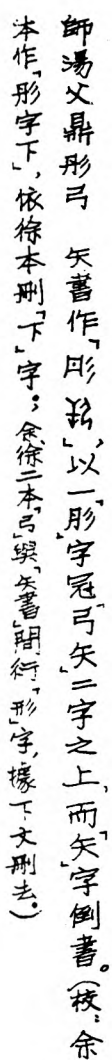 師湯父鼎彤弓　矢書作「彤 」,以一「彤」字冠「弓矢」二字之上,而「矢」字倒書。(校:余
本作「彤字下」,依徐本刪「下」字。;余徐二本「弓」與「矢書」間衍「形」字,據下文刪去。)